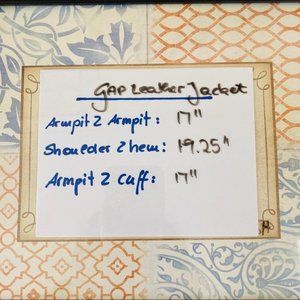 GAP Leather Jacket
Armpit 2 Armpit: 17"
Shoulder 2 hem: 19.25"
Armpit 2 Cuff: 17"